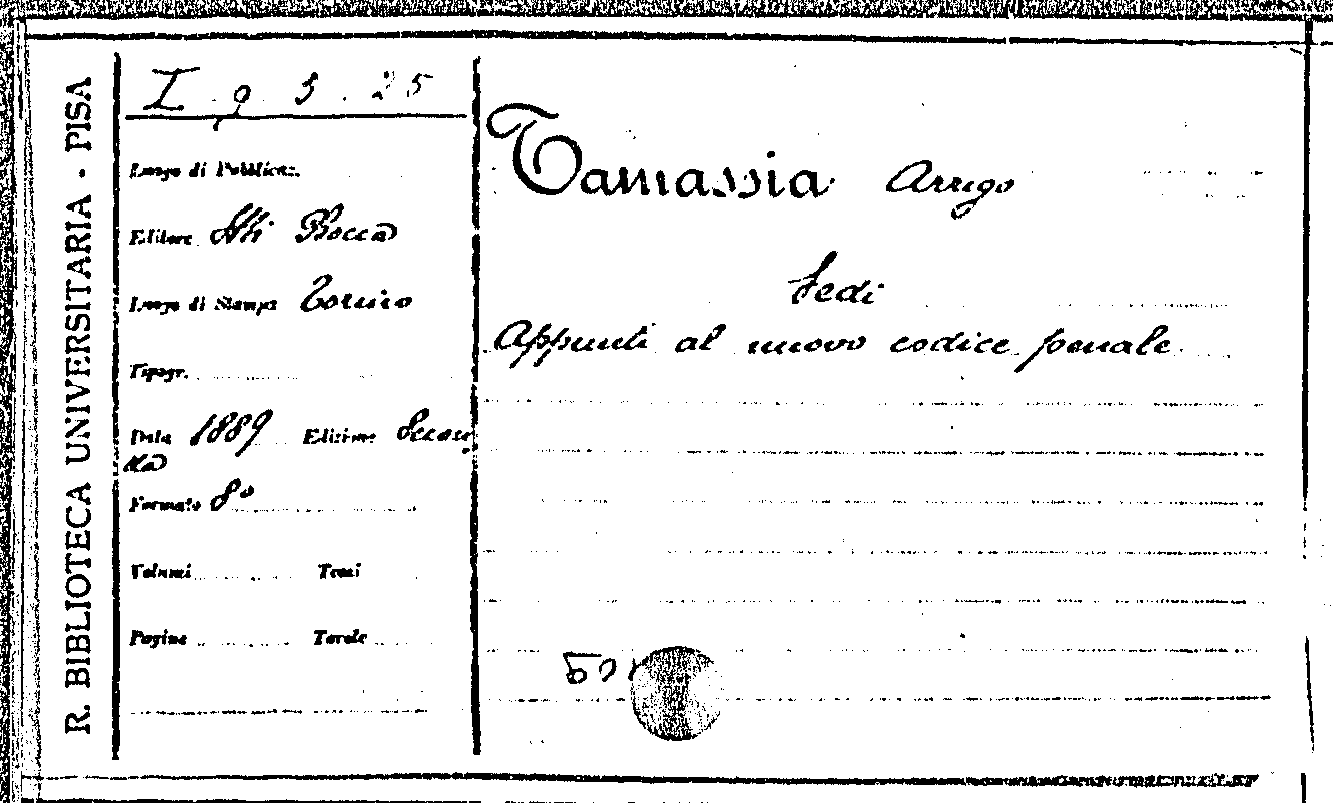 R. BIBLIOTECA UNIVERSITARIA - PISA
I . 9 . 5 . 25
Luogo di Pubblicaz.
Editore Flli Bocca
Luogo di Stampa Torino
Tipogr.
Data 1889 Edizione Secon
da
Formato 8º
Volumi Tomi
Pagine Tavole
Tamassia Arrigo
Vedi
Appunti al nuovo codice penale